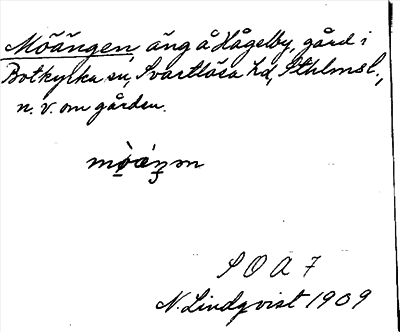 Möängen, äng å Hågelby, gård i
Botkyrka sn, Svartlösa hd, Sthlmsl.,
n. v. om gården.
S O A 7
N. Lindqvist 1909